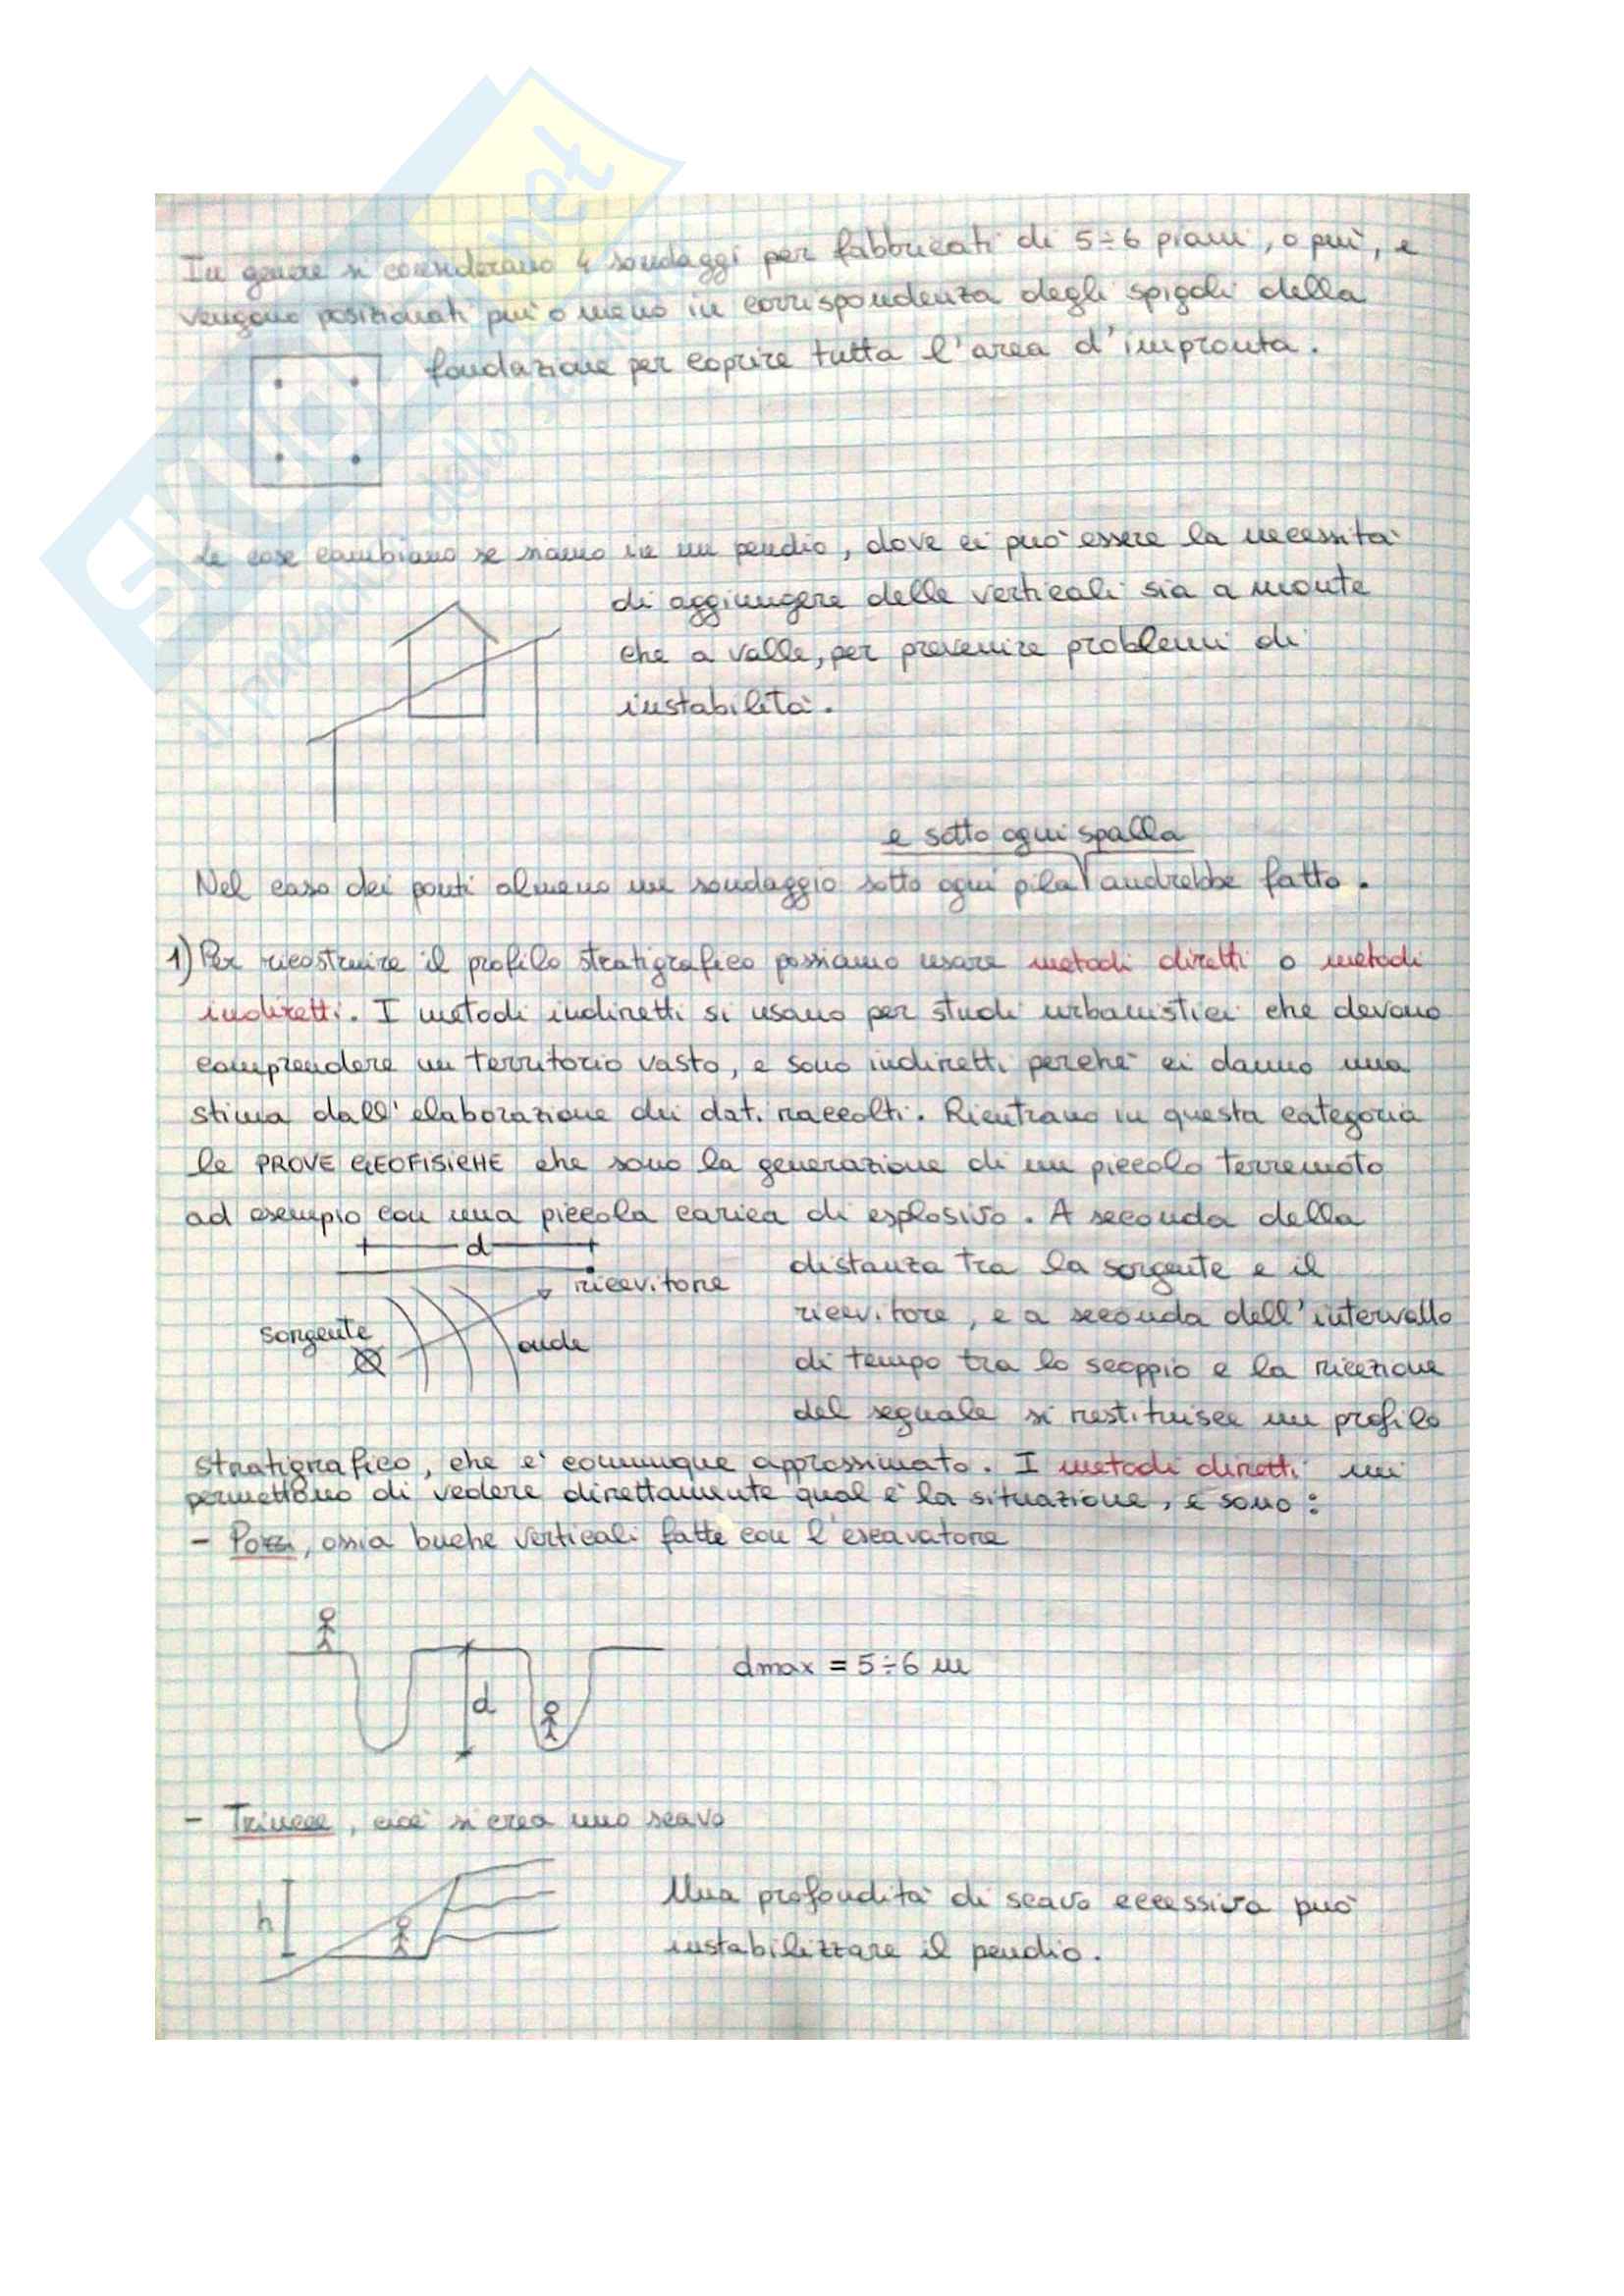 In genere si considerano 4 sondaggi per fabbricati di 5÷6 piani, o più, e
vengono posizionati più o meno in corrispondenza degli spigoli della
fondazione per coprire tutta l'area d'impronta.
Le cose cambiano se siamo in un pendio, dove ci può essere la necessità
di aggiungere delle verticali sia a monte
che a valle, per prevenire problemi di
instabilità.
e sotto ogni spalla
Nel caso dei ponti almeno un sondaggio sotto ogni pila andrebbe fatto.
1) Per ricostruire il profilo stratigrafico possiamo usare metodi diretti o metodi
indiretti. I metodi indiretti si usano per studi urbanistici che devono
comprendere un territorio vasto, e sono indiretti perché ci danno una
stima dall'elaborazione dei dati raccolti. Rientrano in questa categoria
le PROVE GEOFISICHE che sono la generazione di un piccolo terremoto
ad esempio con una piccola carica di esplosivo. A seconda della
d
distanza tra la sorgente e il
ricevitore
ricevitore, e a seconda dell'intervallo
sorgente
onde
di tempo tra lo scoppio e la ricezione
del segnale si restituisce un profilo
stratigrafico, che è comunque approssimato. I metodi diretti mi
permettono di vedere direttamente qual è la situazione, e sono:
- Pozzi, ossia buche verticali fatte con l'escavatore
dmax = 5÷6 m
d
- Trincee, cioè si crea uno scavo
h
Una profondità di scavo eccessiva può
instabilizzare il pendio.
SKUOLA.net
il paradiso dello